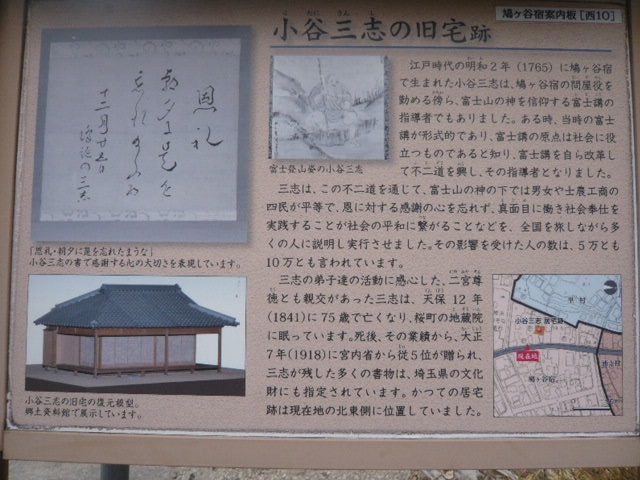 鳩ヶ谷宿案内板［西10］
小谷三志の旧宅跡
こたにさんし
恩礼
朝夕に是を
忘れたまふな
十二月廿五日
鳩谷の三志
「恩礼・朝夕に是を忘れたまうな」
小谷三志の書で感謝する心の大切さを表現しています。
小谷三志の旧宅の復元模型。
郷土資料館で展示しています。
富士登山姿の小谷三志
江戸時代の明和2年（1765）に鳩ヶ谷宿
で生まれた小谷三志は、鳩ヶ谷宿の問屋役を
勤める傍ら、富士山の神を信仰する富士講の
指導者でもありました。ある時、当時の富士
講が形式的であり、富士講の原点は社会に役
立つものであると知り、富士講を自ら改革し
て不二道を興し、その指導者となりました。
三志は、この不二道を通じて、富士山の神の下では男女や士農工商の
四民が平等で、恩に対する感謝の心を忘れず、真面目に働き社会奉仕を
実践することが社会の平和に繋がることなどを、全国を旅しながら多
くの人に説明し実行させました。その影響を受けた人の数は、5万とも
10万とも言われています。
三志の弟子達の活動に感心した、二宮尊
徳とも親交があった三志は、天保12年
(1841)に75歳で亡くなり、桜町の地蔵院
に眠っています。死後、その業績から、大正
7年(1918)に宮内省から従5位が贈られ、
三志が残した多くの書物は、埼玉県の文化
財にも指定されています。かつての居宅
跡は現在地の北東側に位置していました。
里村
小谷三志 居宅跡
現在地
鳩ヶ谷宿